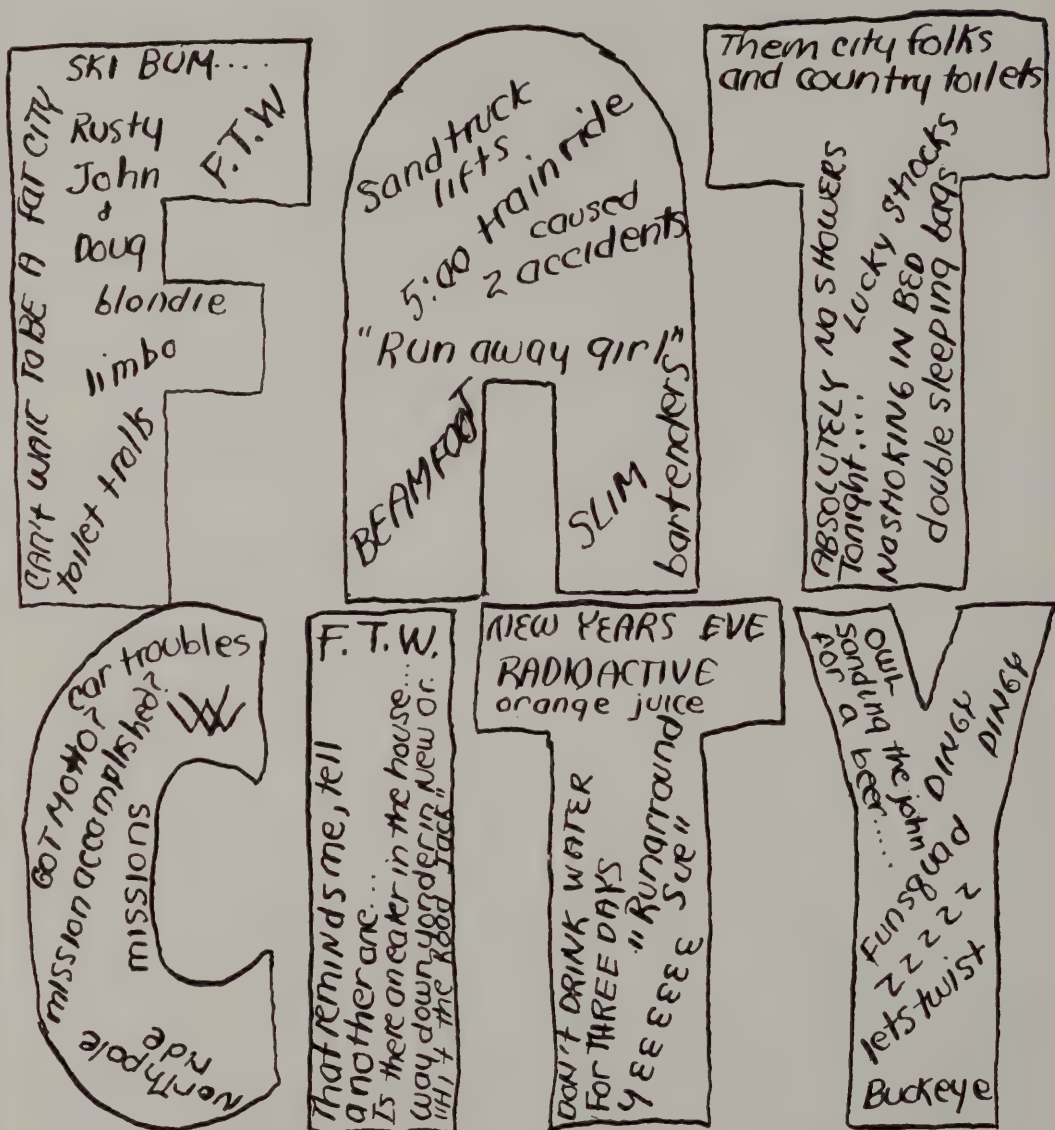 SKI BUM....
Rusty
John
&
Doug
F.T.W
CAN'T WAIT TO BE A FAT CITY
blondie
limbo
toilet trolls
Sand truck
lifts
5:00 train ride
caused
2 accidents
"Run away girl"
BEAMFOOT
SLIM
bartenders
Them city folks
and country toilets
ABSOLUTELY NO SHOWERS
Tonight.... Lucky STROCKS
NO SMOKING IN BED
double sleeping bags
car troubles
GOT MOTTO?
mission accomplished?
missions
North pole
ride
F. T. W.
That reminds me, tell
another one...
Is there an eater in the house...
way down yonder in New Or.
"Hit the Road Jack"
NEW YEARS EVE
RADIOACTIVE
orange juice
DON'T DRINK WATER
For THREE DAYS
"Runarround
Sue"
YEEEEEE
Owl-
sanding the john
for a beer.....
DINGY
DINGY
Funsquad
ZZZZZ
lets twist
Buckeye